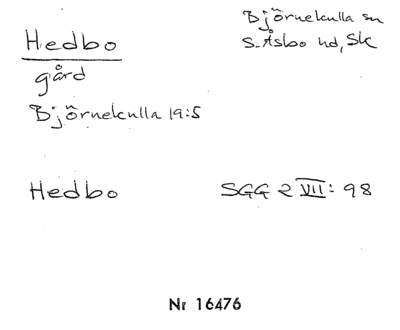 Hedbo
gård
Björnekulla 19:5
Björnekulla sn
S. Åsbo hd, Sk
Hedbo
SGG 2 VII: 98
Nr 16476